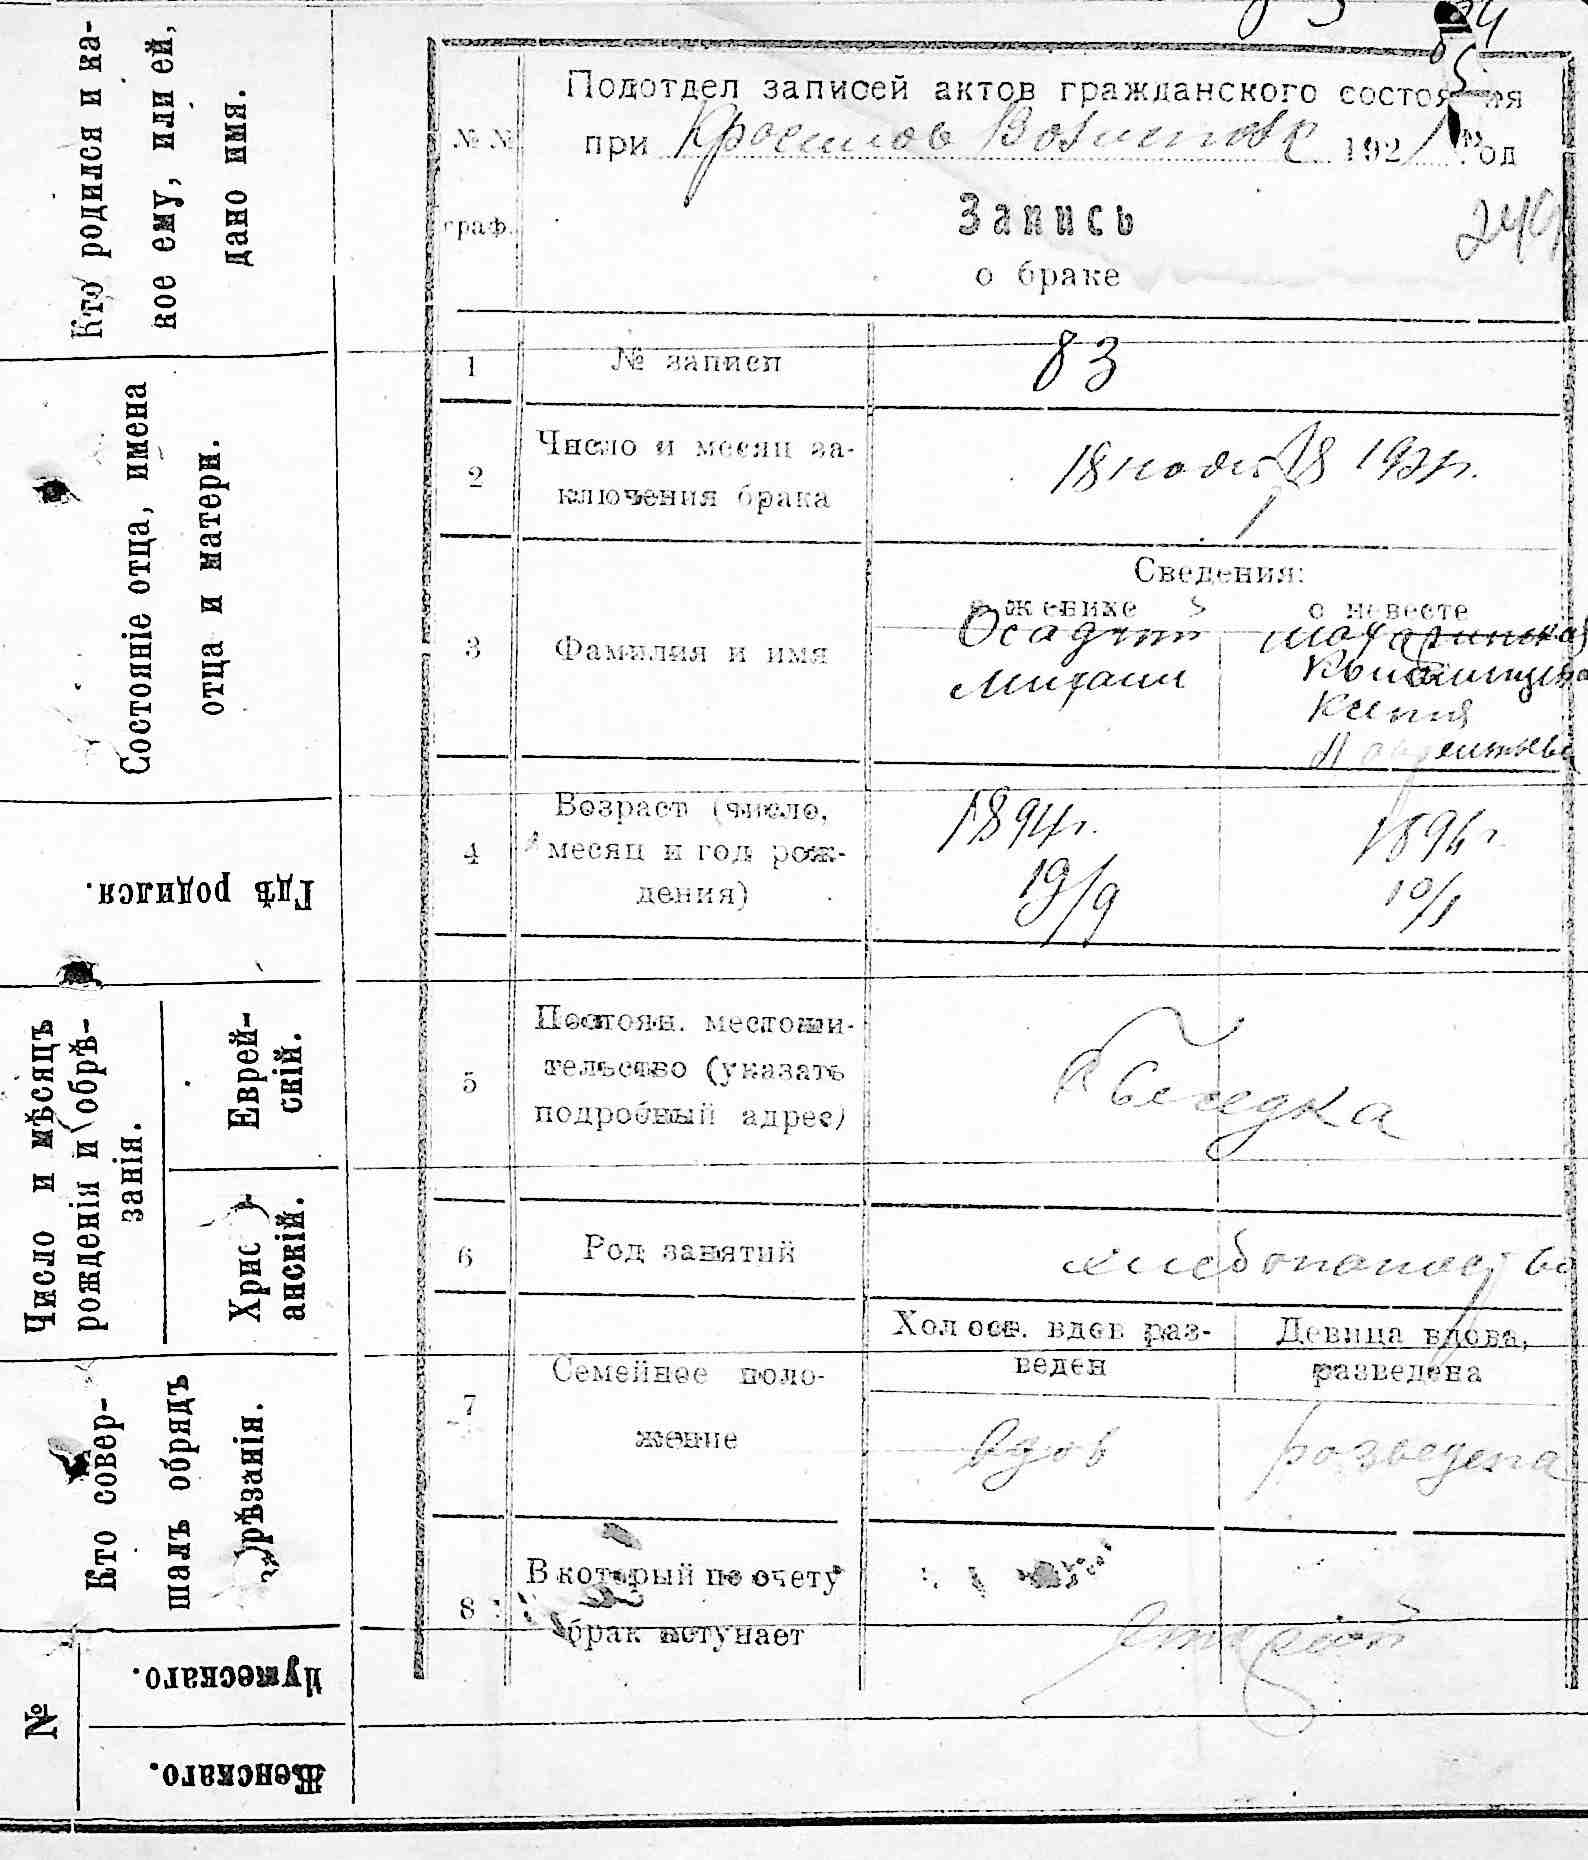 Кто родился и ка-
кое ему, или ей,
дано имя.
Состояніе отца, имена
отца и матери.
Гдѣ родился.
Число и мѣсяцъ
рожденія и обрѣ-
занія.
Еврей-
скій.
Христі-
анскій.
Кто совер-
шалъ обрядъ
обрѣзанія.
№
Мужескаго.
Женскаго.
№№
граф.
Подотдел записей актов гражданского состояния
при 1921 год
Запись
о браке
249
1 № записи 83
2 Число и месяц за-
ключения брака
18 1921 г.
Сведения:
о женихе о невесте
3 Фамилия и имя
Осадчий
Михаил
Ксения
Лаврентьевна
4 Возраст (число,
месяц и год рож-
дения)
1894 г. 1896 г.
19/9 10/1
5 Постоян. местожи-
тельство (указать
подробный адрес)
6 Род занятий хлебопашество
7 Семейное поло-
жение
Холост. вдов раз-
веден
Девица вдова,
разведена
вдов разведена
8 В который по счету
брак вступает